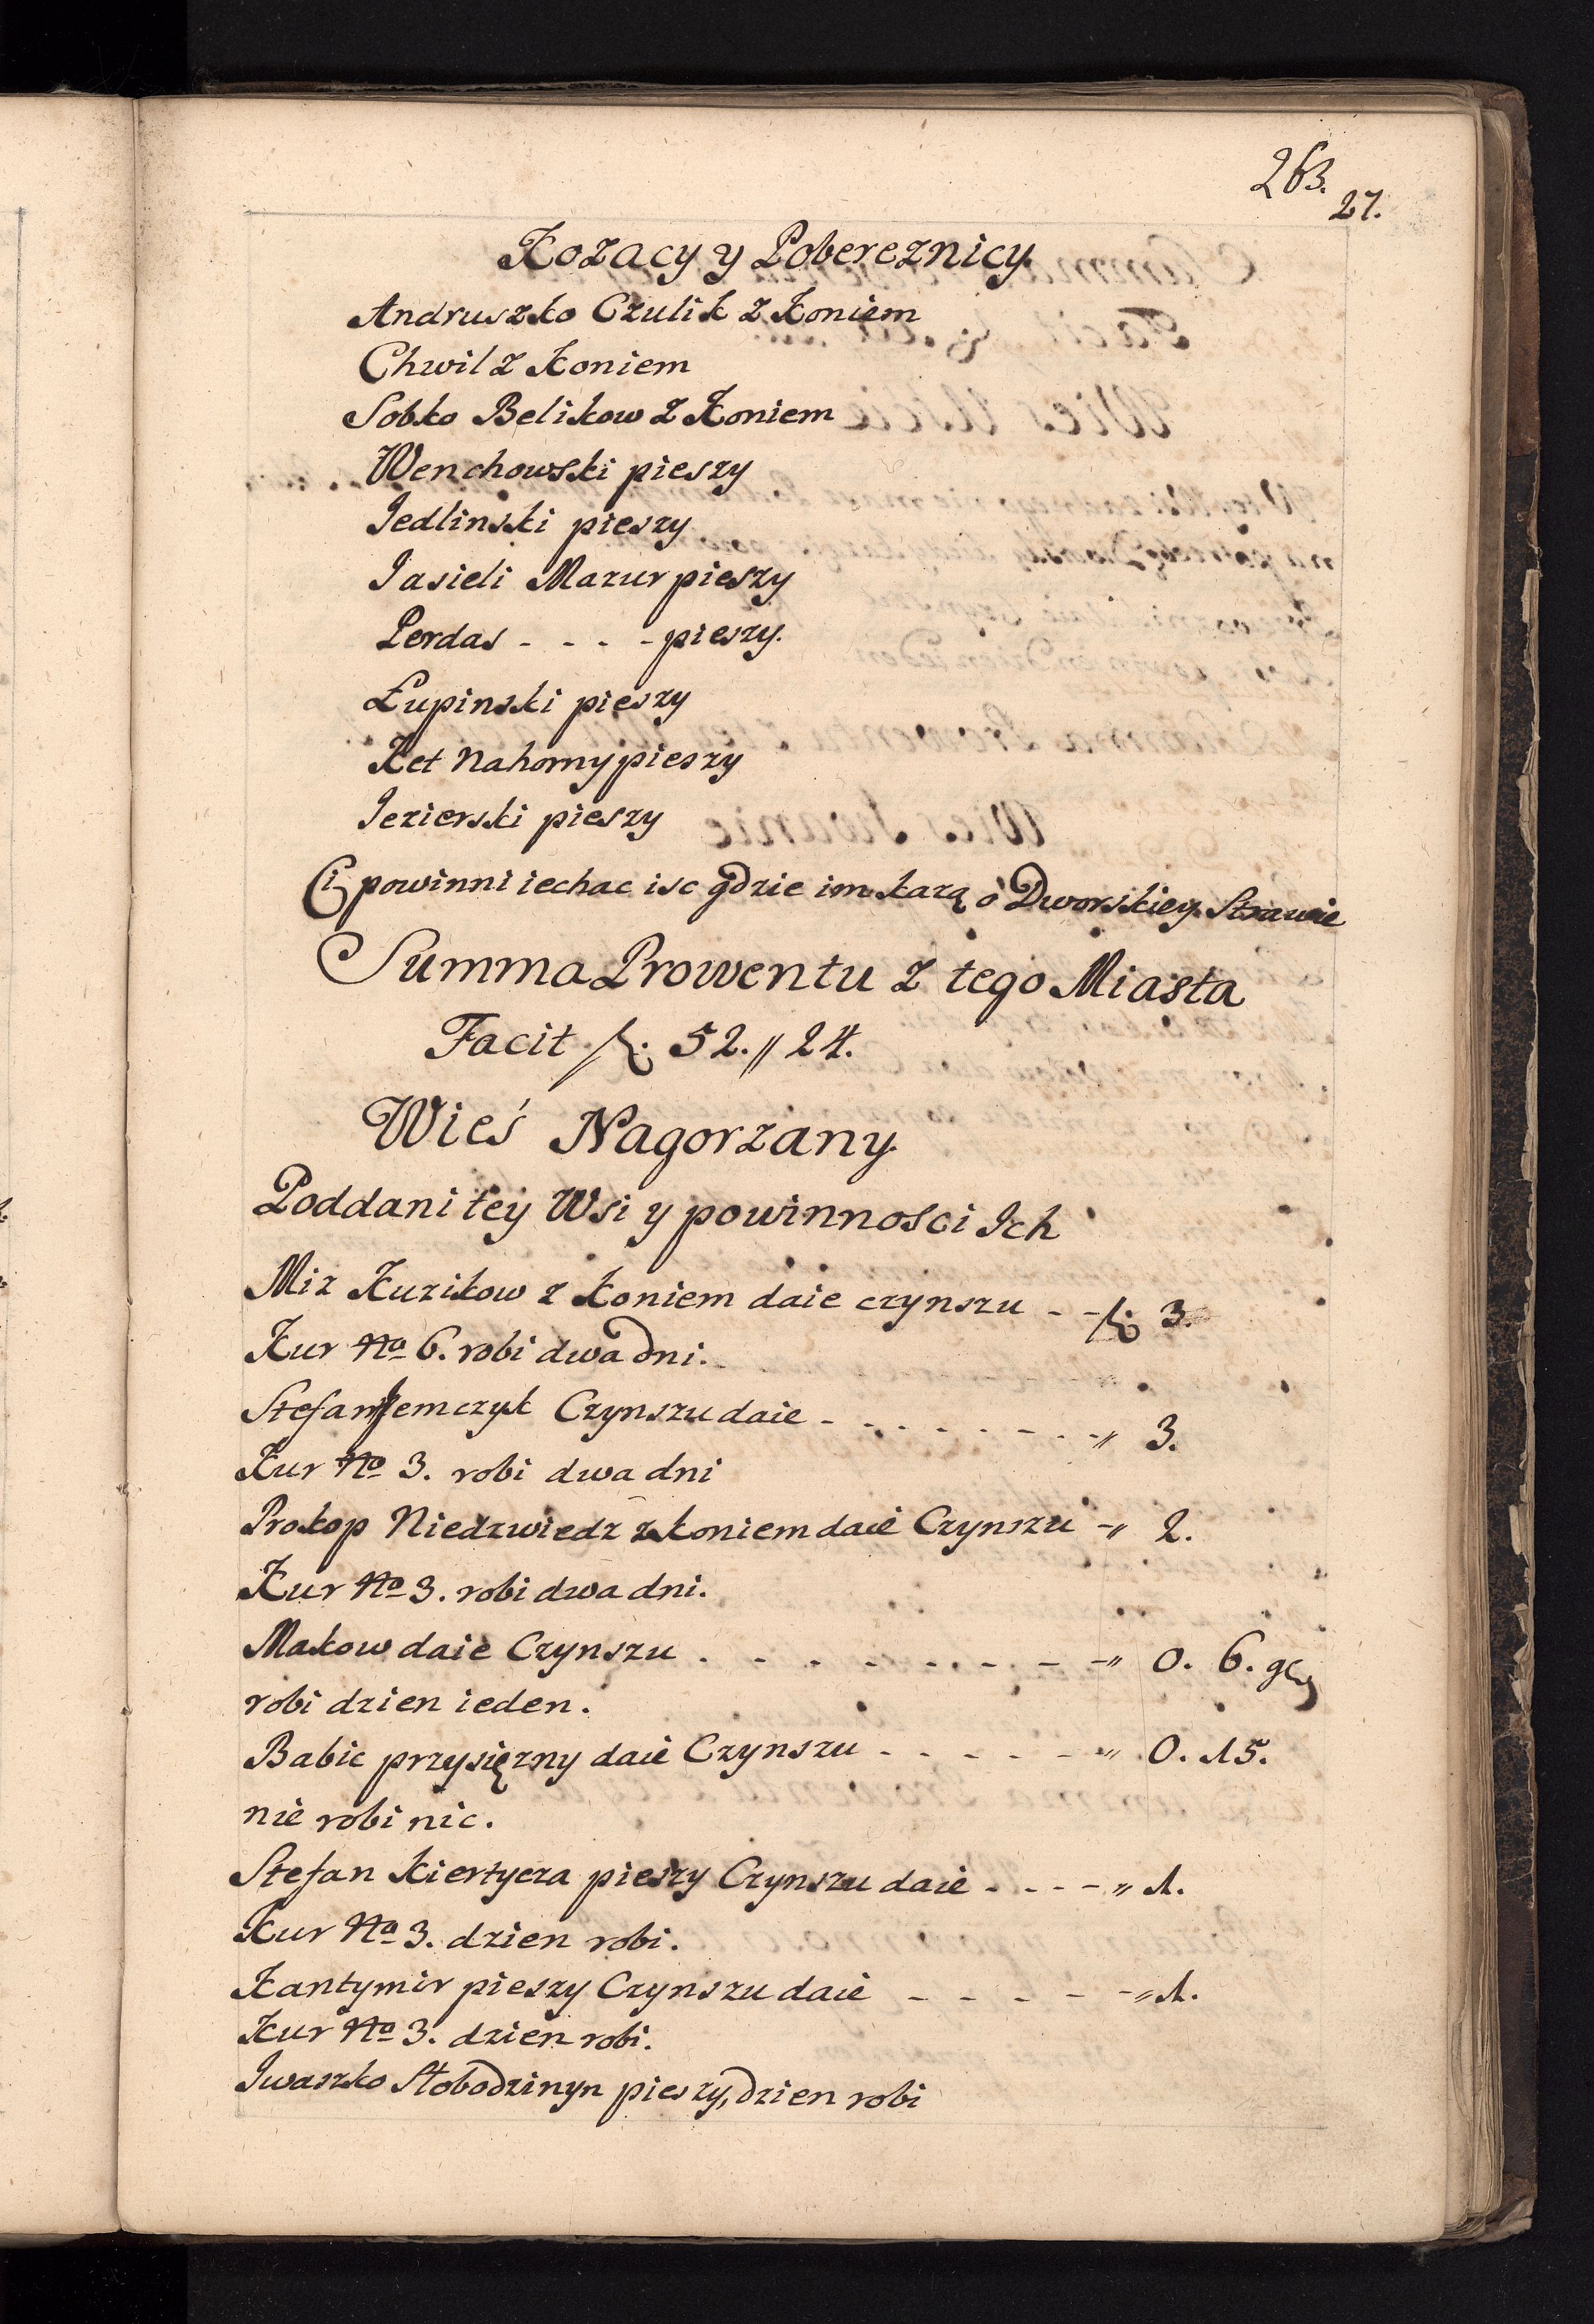 263.
27.
Kozacy y Pobereznicy.
Andruszko Czulik z Koniem
Chwil z Koniem
Sobko Belikow z Koniem
Wenchowski pieszy
Jedlinski pieszy
Jasieli Mazur pieszy
Perdas - - - - pieszy.
Łupinski pieszy
Ket Nahorny pieszy
Jezierski pieszy
Ci powinni iechac isc gdzie im każą o Dworskiey Strawie
Summa Prowentu z tego Miasta
Facit fl. 52. // 24.
Wieś Nagorzany.
Poddani tey Wsi y powinnosci Ich
Miz Kuzikow z koniem daie czynszu - - fl. 3.
Kur No 6. robi dwa dni.
Stefan Jemczyk Czynszu daie - - - - - - - - " 3.
Kur No 3. robi dwa dni
Prokop Niedzwiedz z koniem daie Czynszu - " 2.
Kur No 3. robi dwa dni.
Makow daie Czynszu . - - - - - - - - " 0. 6. gr
robi dzien ieden.
Babic przysięzny daie Czynszu - - - - - - " 0. 15.
nie robi nic.
Stefan Kiertycza pieszy Czynszu daie - - - - " 1.
Kur No 3. dzien robi.
Kantymir pieszy Czynszu daie - - - - - " 1.
Kur No 3. dzien robi.
Iwaszko Słobodzinyn pieszy, dzien robi